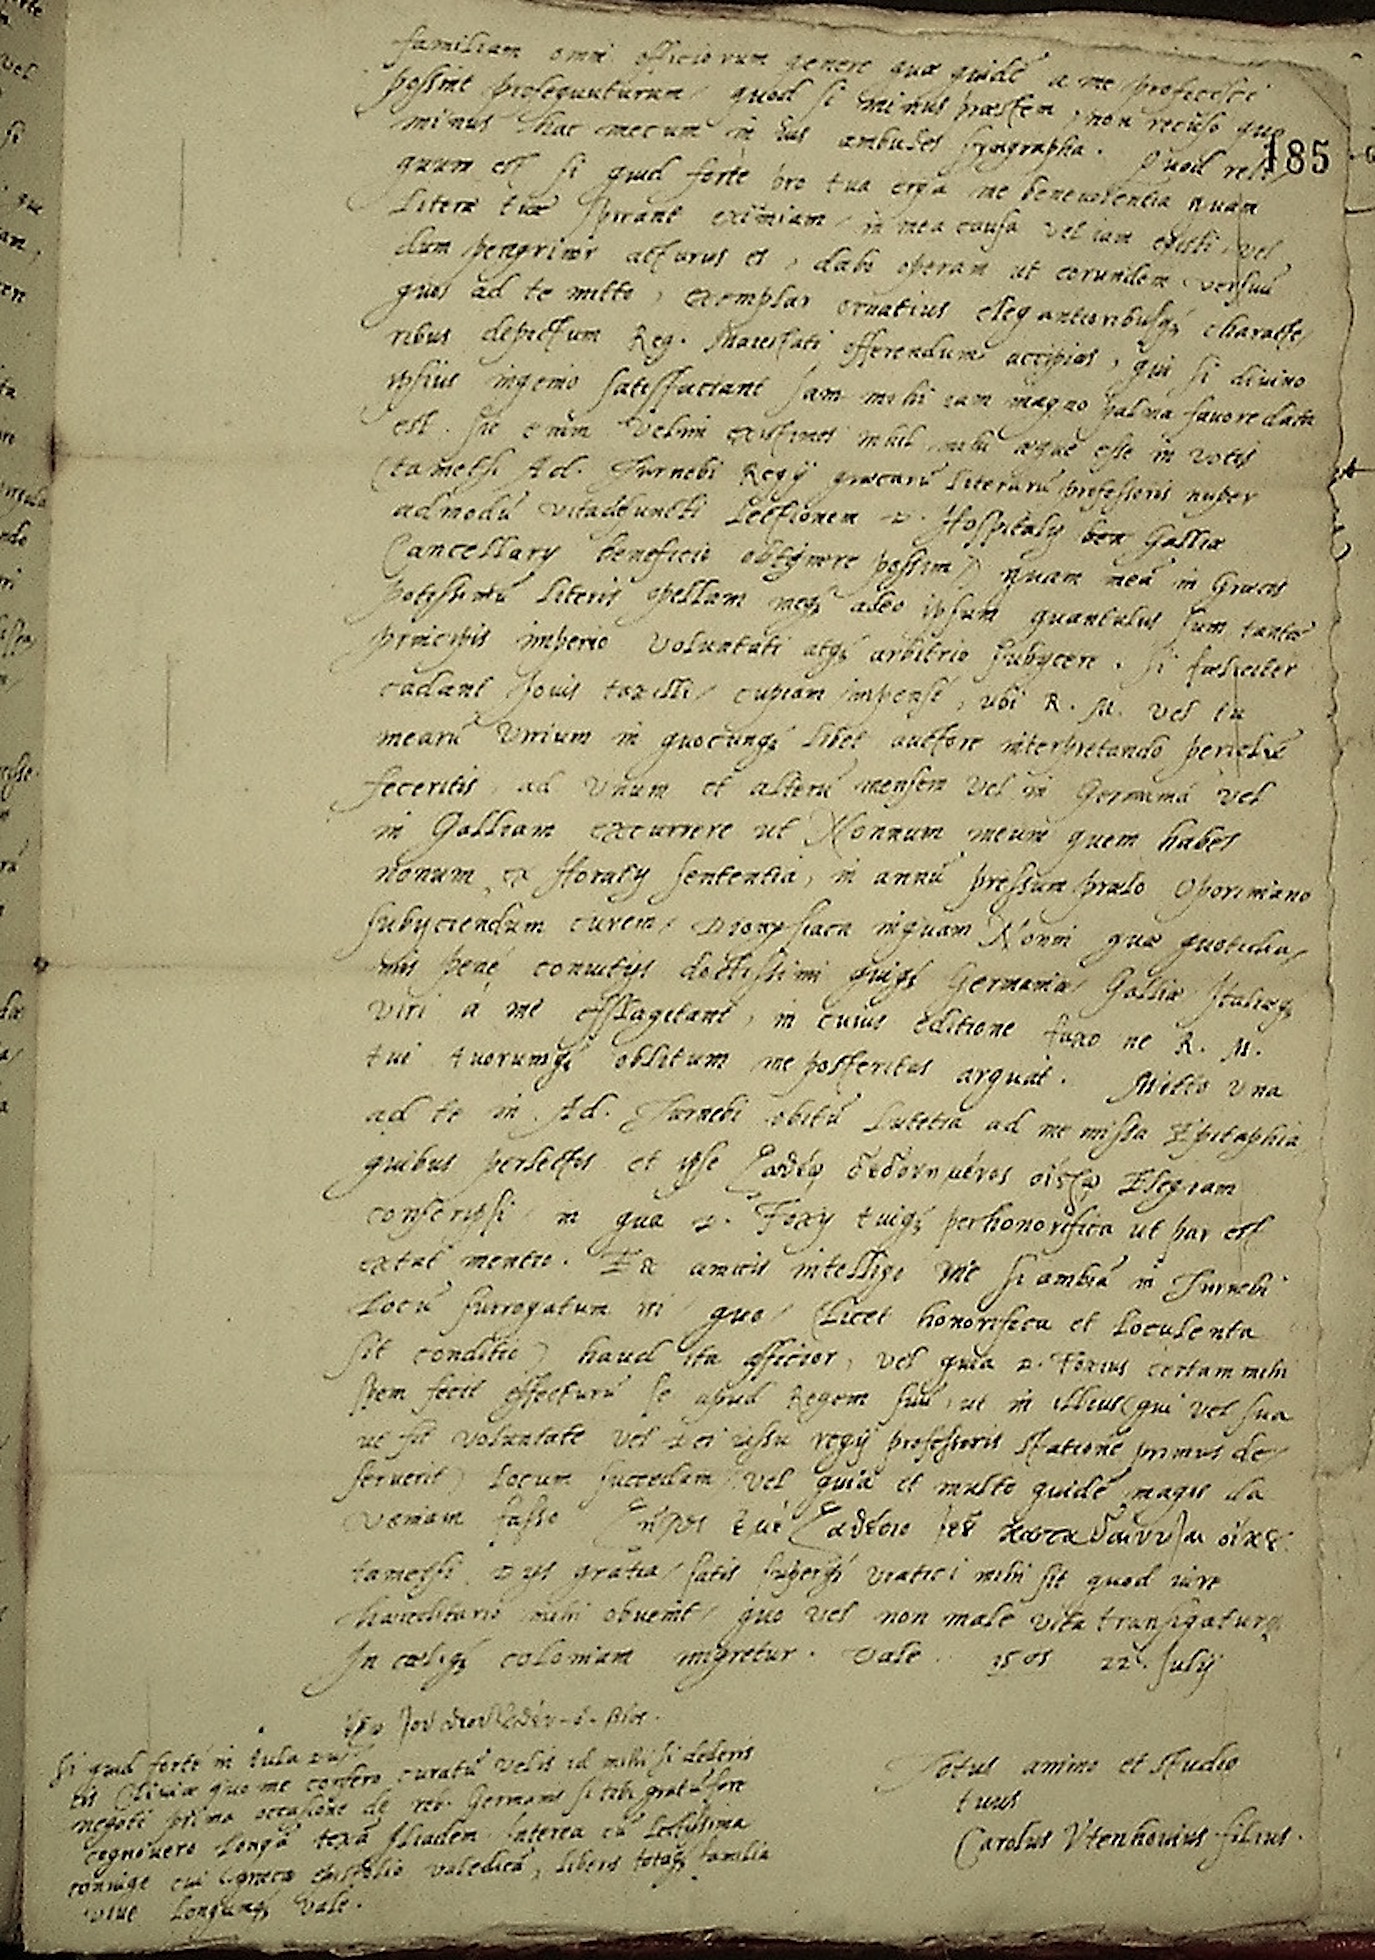 familiam omni officiorum genere quæ quidē a me proficisci
possint prosequuturum, quod si minus præstem, non recuso quo
minus hac mecum in ius ambules syngrapha. Quod reli
185
quum est si quid fortè pro tua erga me benevolentia quam
Literæ tuæ spirant eximiam, in mea causa vel iam egisti, vel
dum peregrinor acturus es, dabo operam ut eorundem versuū
quos ad te mitto, exemplar ornatius elegantioribusq; characte,
ribus depictum Reg. Maiestati offerendum accipias, qui si divino
ipsius ingenio satisfaciant iam mihi cum magno palma favore data
est. Sic enim velim existimes nihil mihi æque esse in votis
(tametsi Ad. Turnebi Regij græcarū literarū professoris nuper
admodū vita defuncti Lectionem D. Hospitalij Galliæ
Cancellarij beneficio obtinere possim) quam meā in Græcis
potissimū literis opellam meq; adeo ipsum quantulus sum tantæ
principis imperio voluntati atq; arbitrio subijcere. Si fœliciter
cadant Jovis taxilli, cupiam impensè, ubi R. M. vel tu
mearū virium in quocunq; libet auctore interpretando periclū
feceritis, ad unum et alterū mensem vel in Germaniā vel
in Galliam excurrere ut Nonnum meum quem habes
nonum ex Horatij sententia, in annū pressum prælo Oporiniano
subijciendum curem, Dionysiaca inquam Nonni quæ quotidia,
nis penè convitijs doctissimi quiq; Germaniæ, Galliæ Italiæq;
viri à me efflagitant, in cuius editione faxo ne R. M.
tui tuorumq; oblitum me posteritas arguat. Mitto una
ad te in Ad. Turnebi obitū Lutetia ad me missa Epitaphia,
quibus perlectis et ipse Elegiam
conscripsi, in qua D. Foxij tuiq; perhonorifica ut par est
extat mentio. Ex amicis intelligo me si ambiā in Turnebi
Locū surrogatum iri, quo, (licet honorifica et loculenta
sit conditio) haud ita afficior, vel quia D. Foxius certam mihi
spem fecit effecturū se apud Regem suū, ut in illius (qui vel sua
ut fit voluntate vel Dei iussu regij professoris statione primus de,
seruerit) Locum succedam, vel quia et multo quidē magis
tametsi Dijs gratia, satis superq; viatici mihi sit quod iure
hæreditario mihi obvenit, quo vel non male vita transigatur
In cæliq; coloniam migretur. Vale. 1565 22. Julij
Si quid fortè in Aula
negoti prima occasione de reb. Germanis si tibi gratū fore
cognovero longā texā Iliadem. Interea cū Lectissima
coniuge cui græco epistolio valedicā, liberis totaq; familia
vive longumq; vale.
Totus animo et studio
tuus
Carolus Utenhovius filius.